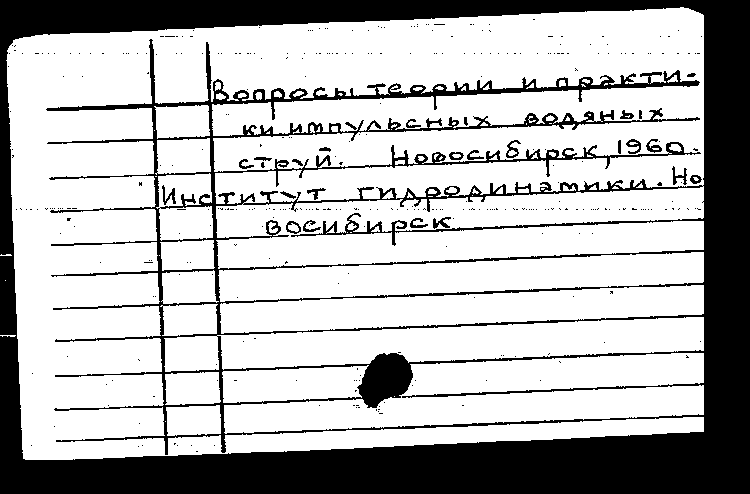 Вопросы теории и практи-
ки импульсных водяных
струй. Новосибирск, 1960.
Институт гидродинамики. Но
восибирск